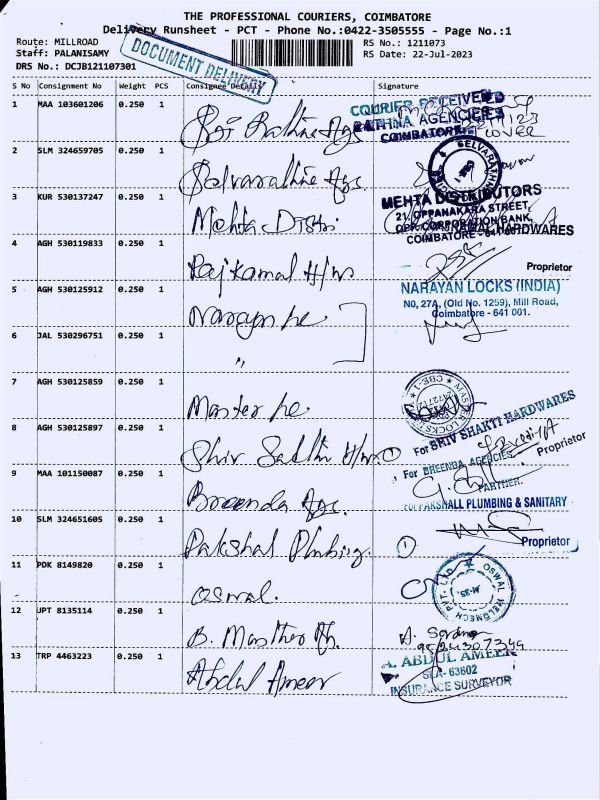 THE PROFESSIONAL COURIERS, COIMBATORE
Delivery Runsheet - PCT - Phone No.:0422-3505555 - Page No.:1
Route: MILLROAD
Staff: PALANISAMY
DRS No.: DCJB121107301
RS No.: 1211073
RS Date: 22-Jul-2023
DOCUMENT DELIVERY
S No Consignment No Weight PCS Consignee Details Signature
1 MAA 103601206 0.250 1 Sri Rathine Ags
COURIER RECEIVED
RATHINA AGENCIES
COIMBATORE
2 SLM 324659705 0.250 1 Selvarathine Ags.
SELVARATHINA
3 KUR 530137247 0.250 1 Mehta Distri
MEHTA DISTRIBUTORS
21, OPPANAKARA STREET,
OPP. CORPORATION BANK,
COIMBATORE
4 AGH 530119833 0.250 1 Rajkamal H/ws
HARDWARES
Proprietor
5 AGH 530125912 0.250 1 Narayn he
NARAYAN LOCKS (INDIA)
NO, 27A, (Old No. 1259), Mill Road,
Coimbatore - 641 001.
6 JAL 530296751 0.250 1 "
7 AGH 530125859 0.250 1 Master he.
8 AGH 530125897 0.250 1 Shiv Sakthi H/ws 1
For SRIV SHAKTI HARDWARES
Proprietor
9 MAA 101150087 0.250 1 Breenda Ags.
For BREENDA AGENCIES
PARTNER.
10 SLM 324651605 0.250 1 Pakshal Plmbing. 1
For PAKSHALL PLUMBING & SANITARY
Proprietor
11 PDK 8149820 0.250 1 oswal.
OSWAL WELDMECH PVT. LTD
12 UPT 8135114 0.250 1 B. Masther
13 TRP 4463223 0.250 1 Abdul Ameer
A. ABDUL AMEER
SLA- 63602
INSURANCE SURVEYOR